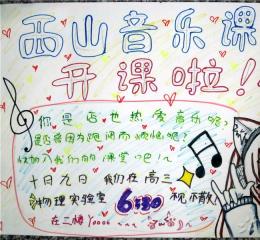 西山音乐课
开课啦！
你是否也热爱音乐呢？
是否因为跑调而烦恼呢？
快加入我们的课堂吧！
十月九日 我们在高三
物理实验室 6:30 不见不散
在二楼Yoooo